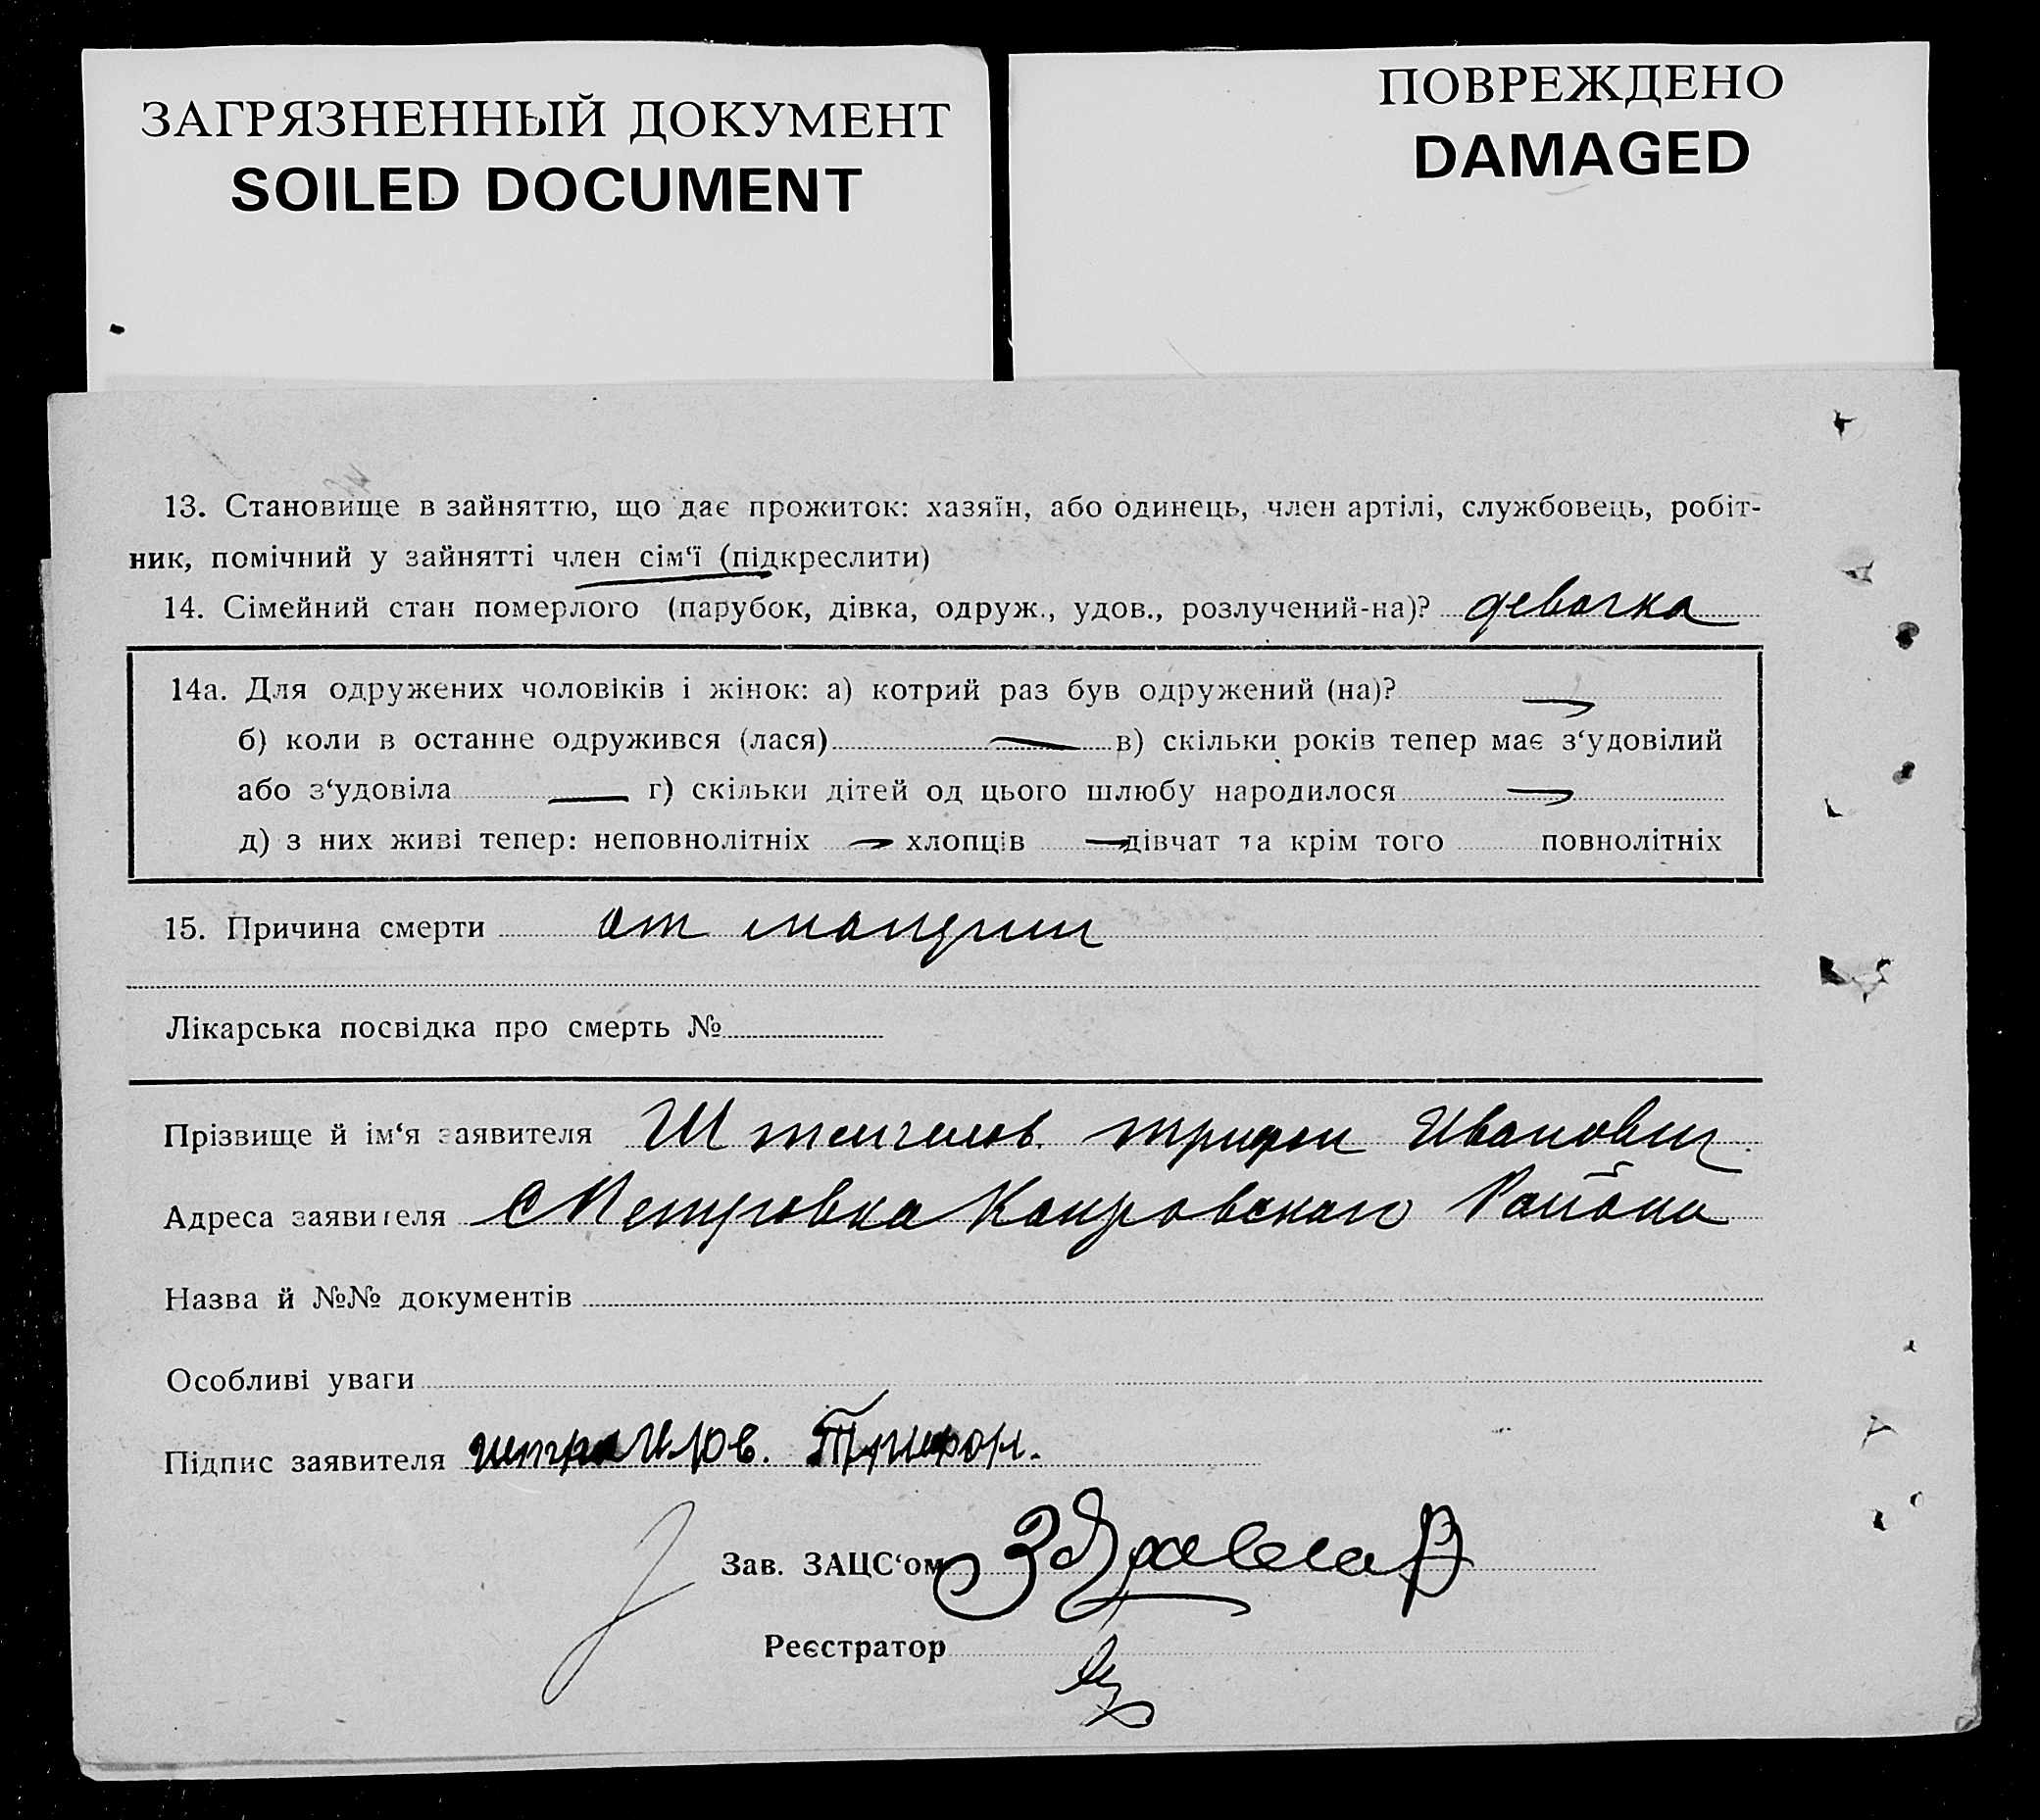 ЗАГРЯЗНЕННЫЙ ДОКУМЕНТ
SOILED DOCUMENT
ПОВРЕЖДЕНО
DAMAGED
13. Становище в зайняттю, що дає прожиток: хазяїн, або одинець, член артілі, службовець, робіт-
ник, помічний у зайнятті член сім‘ї (підкреслити)
14. Сімейний стан померлого (парубок, дівка, одруж., удов., розлучений-на)? девочка
14а. Для одружених чоловіків і жінок: а) котрий раз був одружений (на)? —
б) коли в останне одружився (лася) — в) скільки років тепер має з‘удовілий
або з‘удовіла — г) скільки дітей од цього шлюбу народилося —
д) з них живі тепер: неповнолітніх — хлопців — дівчат та крім того повнолітніх
15. Причина смерти от
Лікарська посвідка про смерть №
Прізвище й ім‘я заявителя Трифон Иванович
Адреса заявителя с Петровка Каировскаго Района
Назва й №№ документів
Особливі уваги
Підпис заявителя Трифон.
Зав. ЗАЦС‘ом
Реєстратор